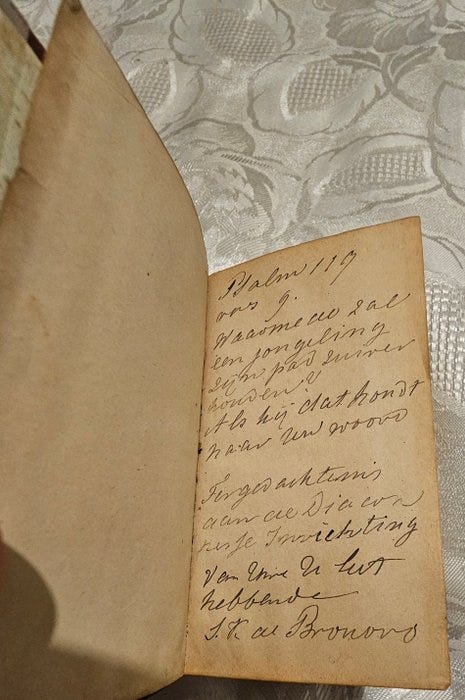 Psalm 119
vers 9.
Waarmede zal
een jongeling
zijn pad zuiver
houden?
Als hij dat houdt
naar Uw woord
Ter gedachtenis
aan de Diaco
Inrichting
Van Uwe U lief
hebbende
de Bronovo